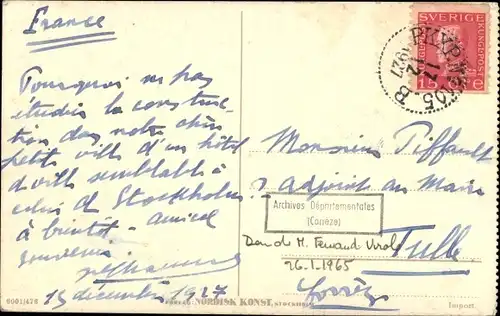 France
Pourquoi ne pas
étudier la construc-
tion dans notre chère
petite ville d'un hôtel
de ville semblable à
celui de Stockholm
à bientôt - amical
souvenir.
15 décembre 1927
6001/476
NORDISK KONST, STOCKHOLM
SVERIGE
KUNGL. POST
15 ÖRE
PKXP. Nº 105. B
17 12
1927
Monsieur Piffault
adjoint au Maire
Archives Départementales
(Corrèze)
Don de M. Fernand
26.1.1965
Tulle
Corrèze
Import.